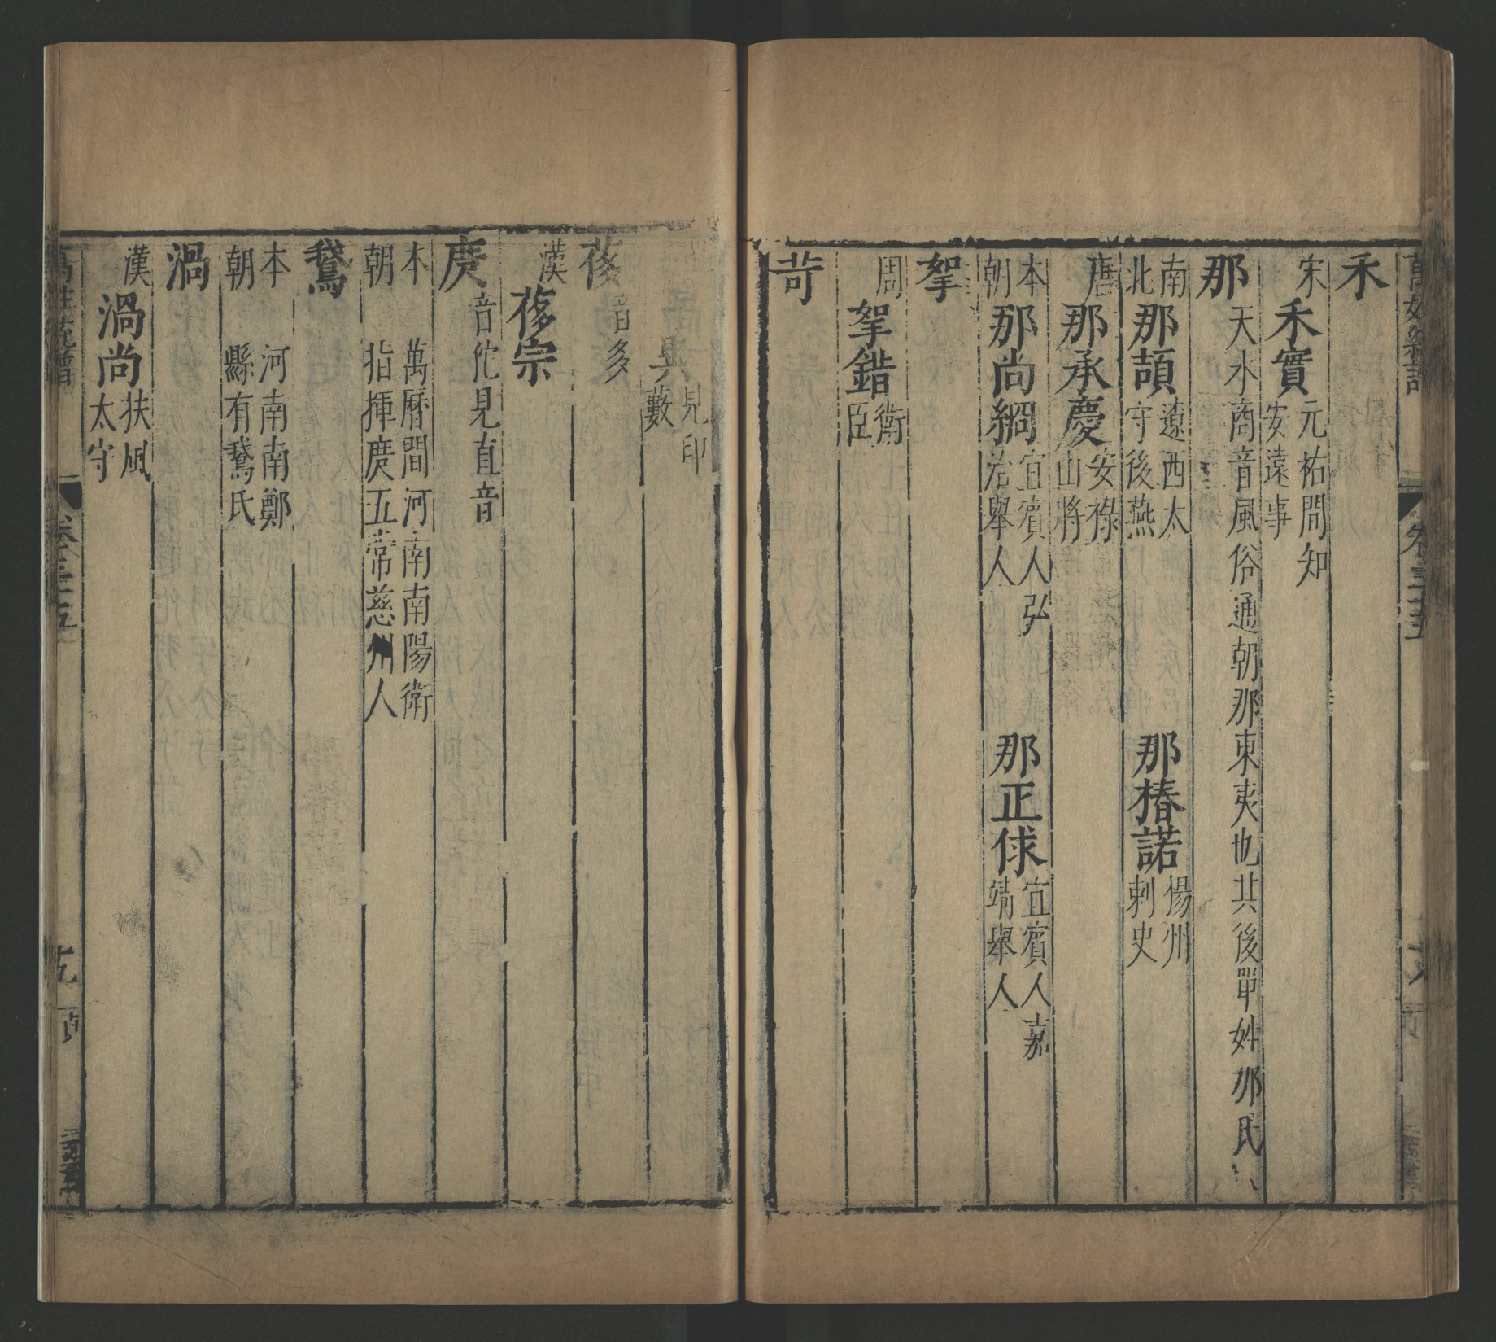 禾
宋 禾實 元祐間知安遠事
那 天水商音風俗通朝那東夷也其後單姓那氏
南北 那頡 遼西太守後燕 那椿諾 揚州刺史
唐 那承慶 安祿山將
本朝 那尚絅 宜賓人弘治舉人 那正俅 宜賓人嘉靖舉人
挐
周 挐錯 衛臣
苛
興 見印藪
音多
漢 㢋宗
音佗見直音
本朝 萬曆間河南南陽衛指揮庹五常慈州人
鵞
本朝 河南南鄭縣有鵞氏
渦
漢 渦尚 扶風太守
卷之三十五